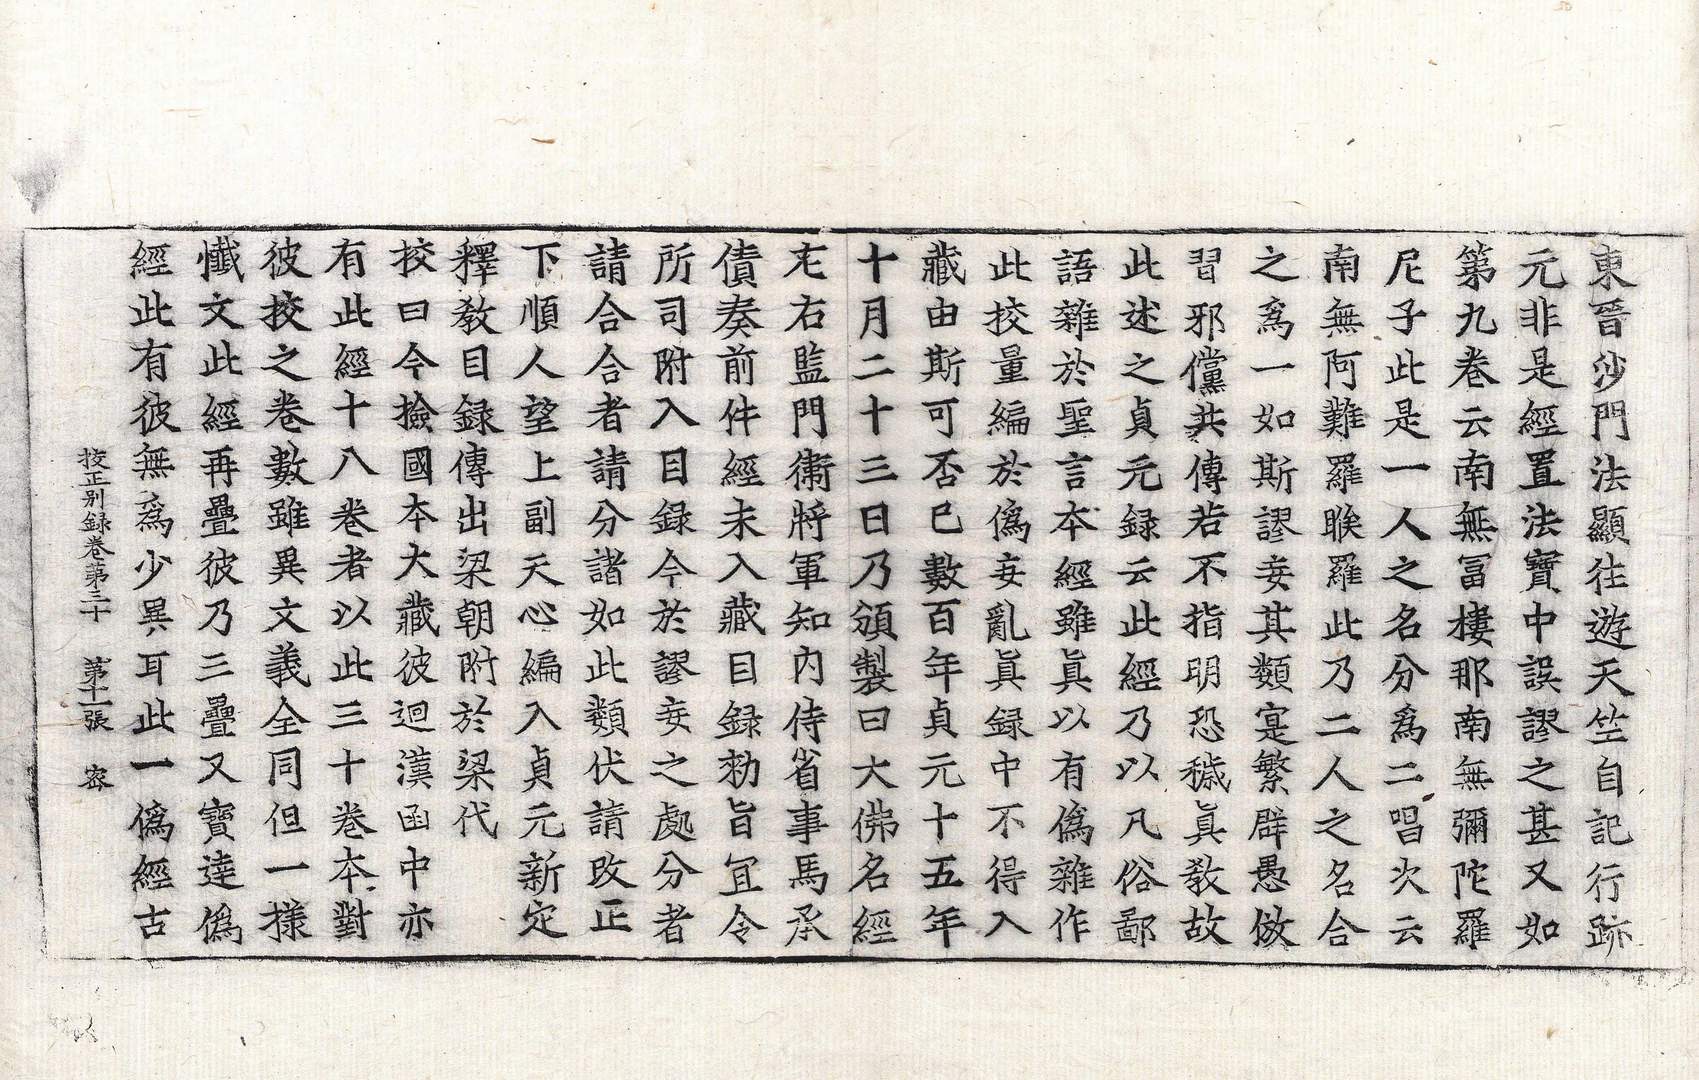 東晉沙門法顯往遊天竺自記行跡
元非是經置法寶中誤謬之甚又如
第九卷云南無冨樓那南無彌陀羅
尼子此是一人之名分爲二唱次云
南無阿難羅睺羅此乃二人之名合
之爲一如斯謬妄其類寔繁群愚倣
習邪儻共傳若不指明恐穢眞教故
此述之貞元録云此經乃以凡俗鄙
語雜於聖言本經雖眞以有僞雜作
此挍量編於僞妄亂眞録中不得入
藏由斯可否已數百年貞元十五年
十月二十三日乃頒製曰大佛名經
右監門衛將軍知内侍省事馬承
債奏前件經未入藏目録勑旨冝令
所司附入目録今於謬妄之處分者
請合合者請分諸如此類伏請改正
下順人望上副天心編入貞元新定
釋教目録傳出梁朝附於梁代
挍曰今撿國本大藏彼迴漢函中亦
有此經十八卷者以此三十卷本對
彼挍之卷數雖異文義全同但一樣
懺文此經再疊彼乃三疊又寶達僞
經此有彼無爲少異耳此一僞經古
挍正別録卷第三十 第十一張 密